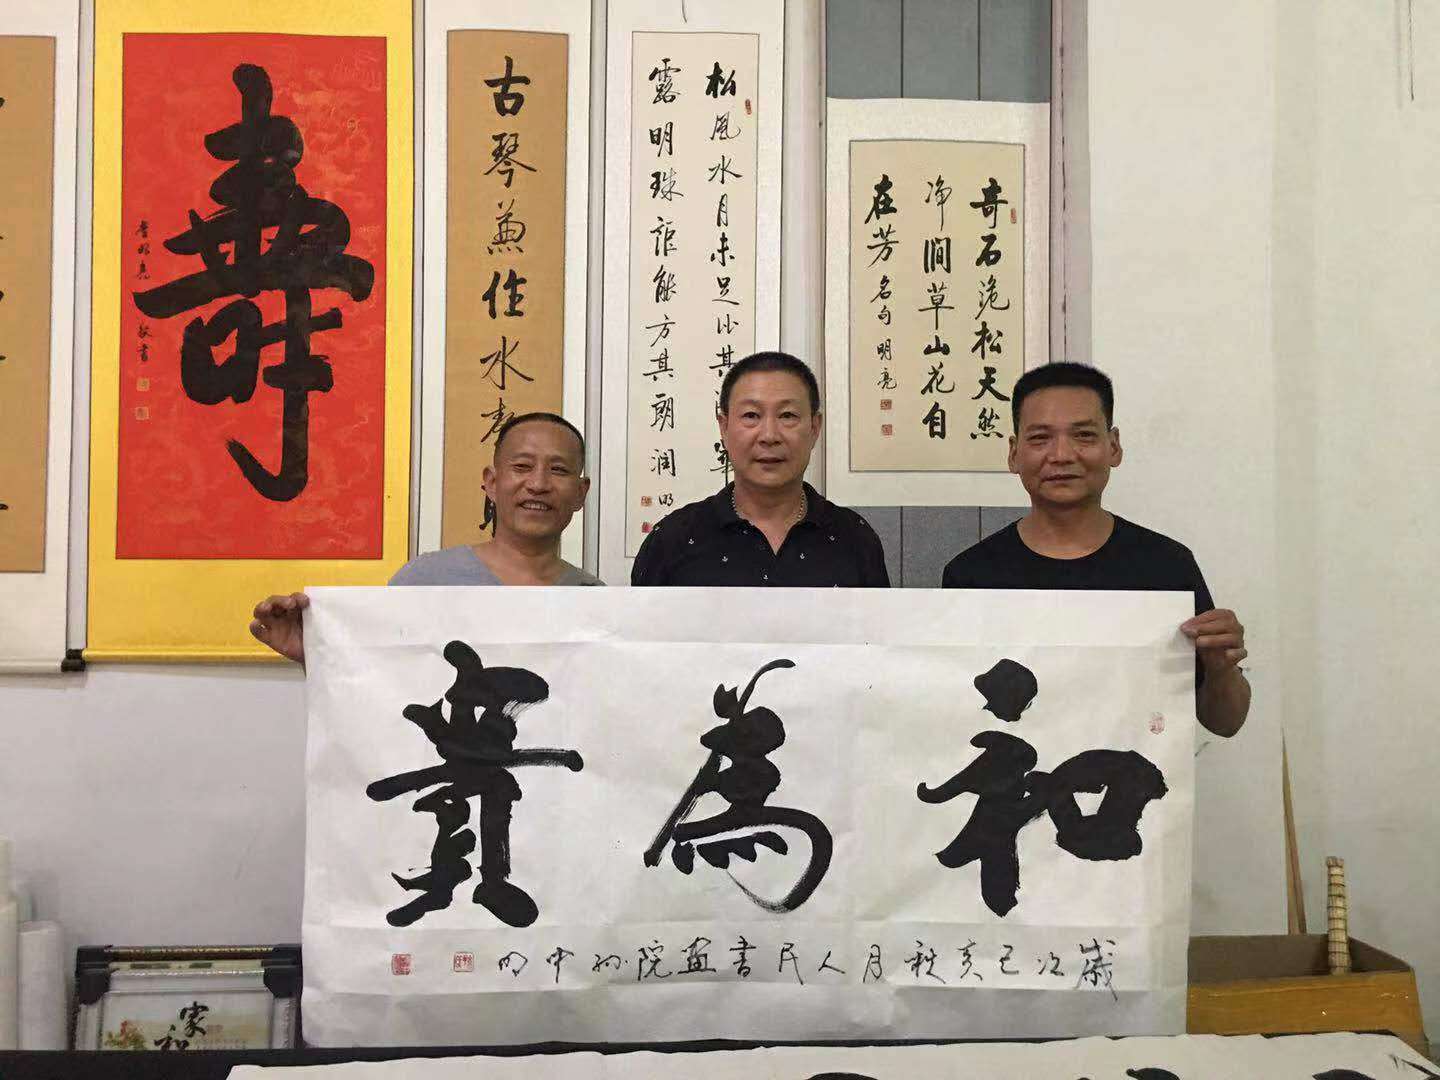 壽
李明亮 敬書
古琴兼佳水
松風水月未足比其
華
露明珠詎能方其朗潤 明
奇石流松天然
净澗草山花自
在芳 名句 明亮
和為貴
歲次已亥秋月人民書畫院孙中明
家和